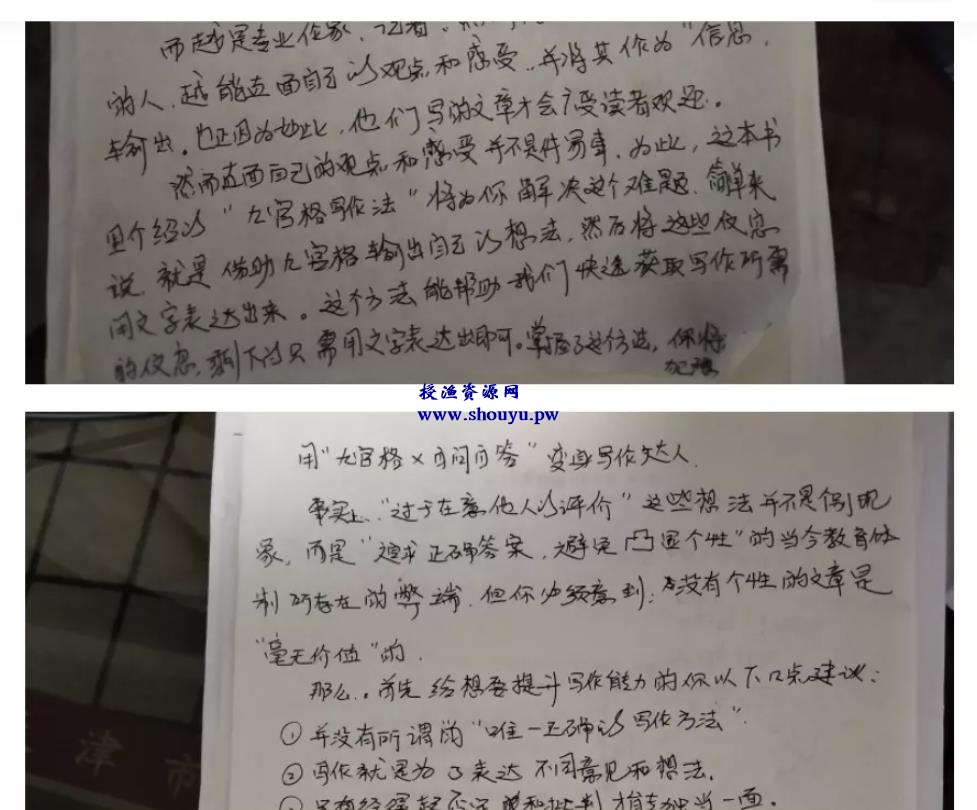 而越是专业作家、记者、
的人,越能直面自己的观点和感受,并将其作为“信息,
输出。也正因为如此,他们写的文章才会广受读者欢迎。
然而直面自己的观点和感受并不是件易事,为此,这本书
里介绍的“九宫格写作法”将为你解决这个难题,简单来
说,就是借助九宫格输出自己的想法,然后将这些信息
用文字表达出来。这个方法能帮助我们快速获取写作所需
的信息,剩下的只需用文字表达出即可。掌握了这个方法,你将
授渔资源网
www.shouyu.pw
用“九宫格×自问自答”变身写作达人.
事实上,“过于在意他人的评价”这些想法并不是个别现
象,而是“追求正确答案,避免凸显个性”的当今教育体
制所存在的弊端.但你必须意到:没有个性的文章是
“毫无价值”的.
那么..首先给想要提升写作能力的你以下口点建议:
①并没有所谓的“唯一正确的写作方法”.
②写作就是为了表达不同意见和想法.
只有经得起否定和批判才能独当一面.
津市